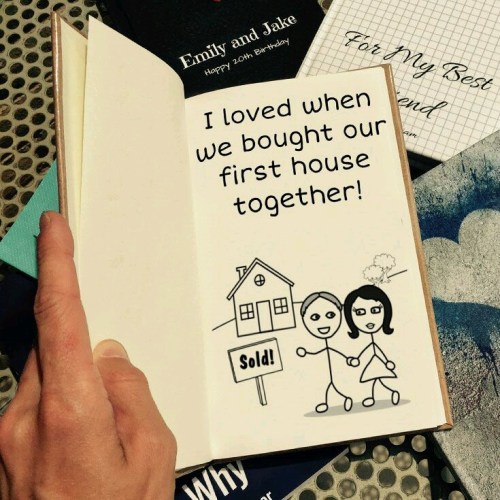 Emily and Jake
Happy 20th Birthday
For My Best
I loved when
we bought our
first house
together!
Sold!
Why